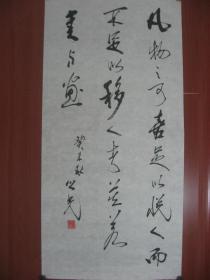 凡物之可喜足以悦人而
不足以移人者莫若
書与畫
癸未秋